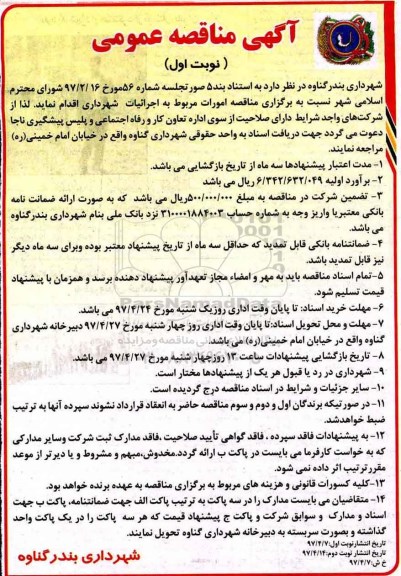 آگهی مناقصه عمومی
( نوبت اول)
شهرداری بندرگناوه در نظر دارد به استناد بند۵ صورتجلسه شماره ۵۶مورخ ۹۷/۲/۱۶ شورای محترم
اسلامی شهر نسبت به برگزاری مناقصه امورات مربوط به اجرائیات شهرداری اقدام نماید. لذا از
شرکت‌های واجد شرایط دارای صلاحیت از سوی اداره تعاون کار و رفاه اجتماعی و پلیس پیشگیری ناجا
دعوت می گردد جهت دریافت اسناد به واحد حقوقی شهرداری گناوه واقع در خیابان امام خمینی(ره)
مراجعه نمایند.
۱- مدت اعتبار پیشنهادها سه ماه از تاریخ بازگشایی می باشد.
۲- برآورد اولیه ۶/۳۴۲/۶۳۲/۰۴۹ ریال می باشد
۳- تضمین شرکت در مناقصه به مبلغ ۵۰۰/۰۰۰/۰۰۰ریال می باشد که به صورت ارائه ضمانت نامه
بانکی معتبریا واریز وجه به شماره حساب ۳۱۰۰۰۰۱۸۸۴۰۰۳ نزد بانک ملی بنام شهرداری بندرگناوه
می باشد.
۴- ضمانتنامه بانکی قابل تمدید که حداقل سه ماه از تاریخ پیشنهاد معتبر بوده وبرای سه ماه دیگر
نیز قابل تمدید باشد.
۵-تمام اسناد مناقصه باید به مهر و امضاء مجاز تعهدآور پیشنهاد دهنده برسد و همزمان با پیشنهاد
قیمت تسلیم شود.
۶- مهلت خرید اسناد: تا پایان وقت اداری روزیک شنبه مورخ ۹۷/۴/۲۴ می باشد.
۷- مهلت و محل تحویل اسناد:تا پایان وقت اداری روز چهار شنبه مورخ ۹۷/۴/۲۷ دبیرخانه شهرداری
گناوه واقع در خیابان امام خمینی(ره) می باشد.
۸- تاریخ بازگشایی پیشنهادات ساعت ۱۳ روزچهارشنبه مورخ ۹۷/۴/۲۷ می باشد.
۹- شهرداری در رد یا قبول هر یک از پیشنهادها مختار است.
۱۰- سایر جزئیات و شرایط در اسناد مناقصه درج گردیده است.
۱۱- در صورتیکه برندگان اول و دوم و سوم مناقصه حاضر به انعقاد قرارداد نشوند سپرده آنها به ترتیب
ضبط خواهدشد.
۱۲- به پیشنهادات فاقد سپرده ، فاقد گواهی تأیید صلاحیت ،فاقد مدارک ثبت شرکت وسایر مدارکی
که به خواست کارفرما می بایست در پاکت ب ارائه گردد.مخدوش،مبهم و مشروط و یا دیرتر از موعد
مقررترتیب اثر داده نمی شود.
۱۳-کلیه کسورات قانونی و هزینه های مربوط به برگزاری مناقصه به عهده برنده خواهد بود.
۱۴- متقاضیان می بایست مدارک را در سه پاکت به ترتیب پاکت الف جهت ضمانتنامه، پاکت ب جهت
اسناد و مدارک و سوابق شرکت و پاکت ج پیشنهاد قیمت که هر سه پاکت را در یک پاکت واحد
گذاشته و بصورت سربسته به دبیرخانه شهرداری گناوه تحویل نمایند.
تاریخ انتشارنوبت اول:۹۷/۴/۷
تاریخ انتشار نوبت دوم:۹۷/۴/۱۴
خ ش:۹۷/۴/۷
شهرداری بندر گناوه
ParsNamadData